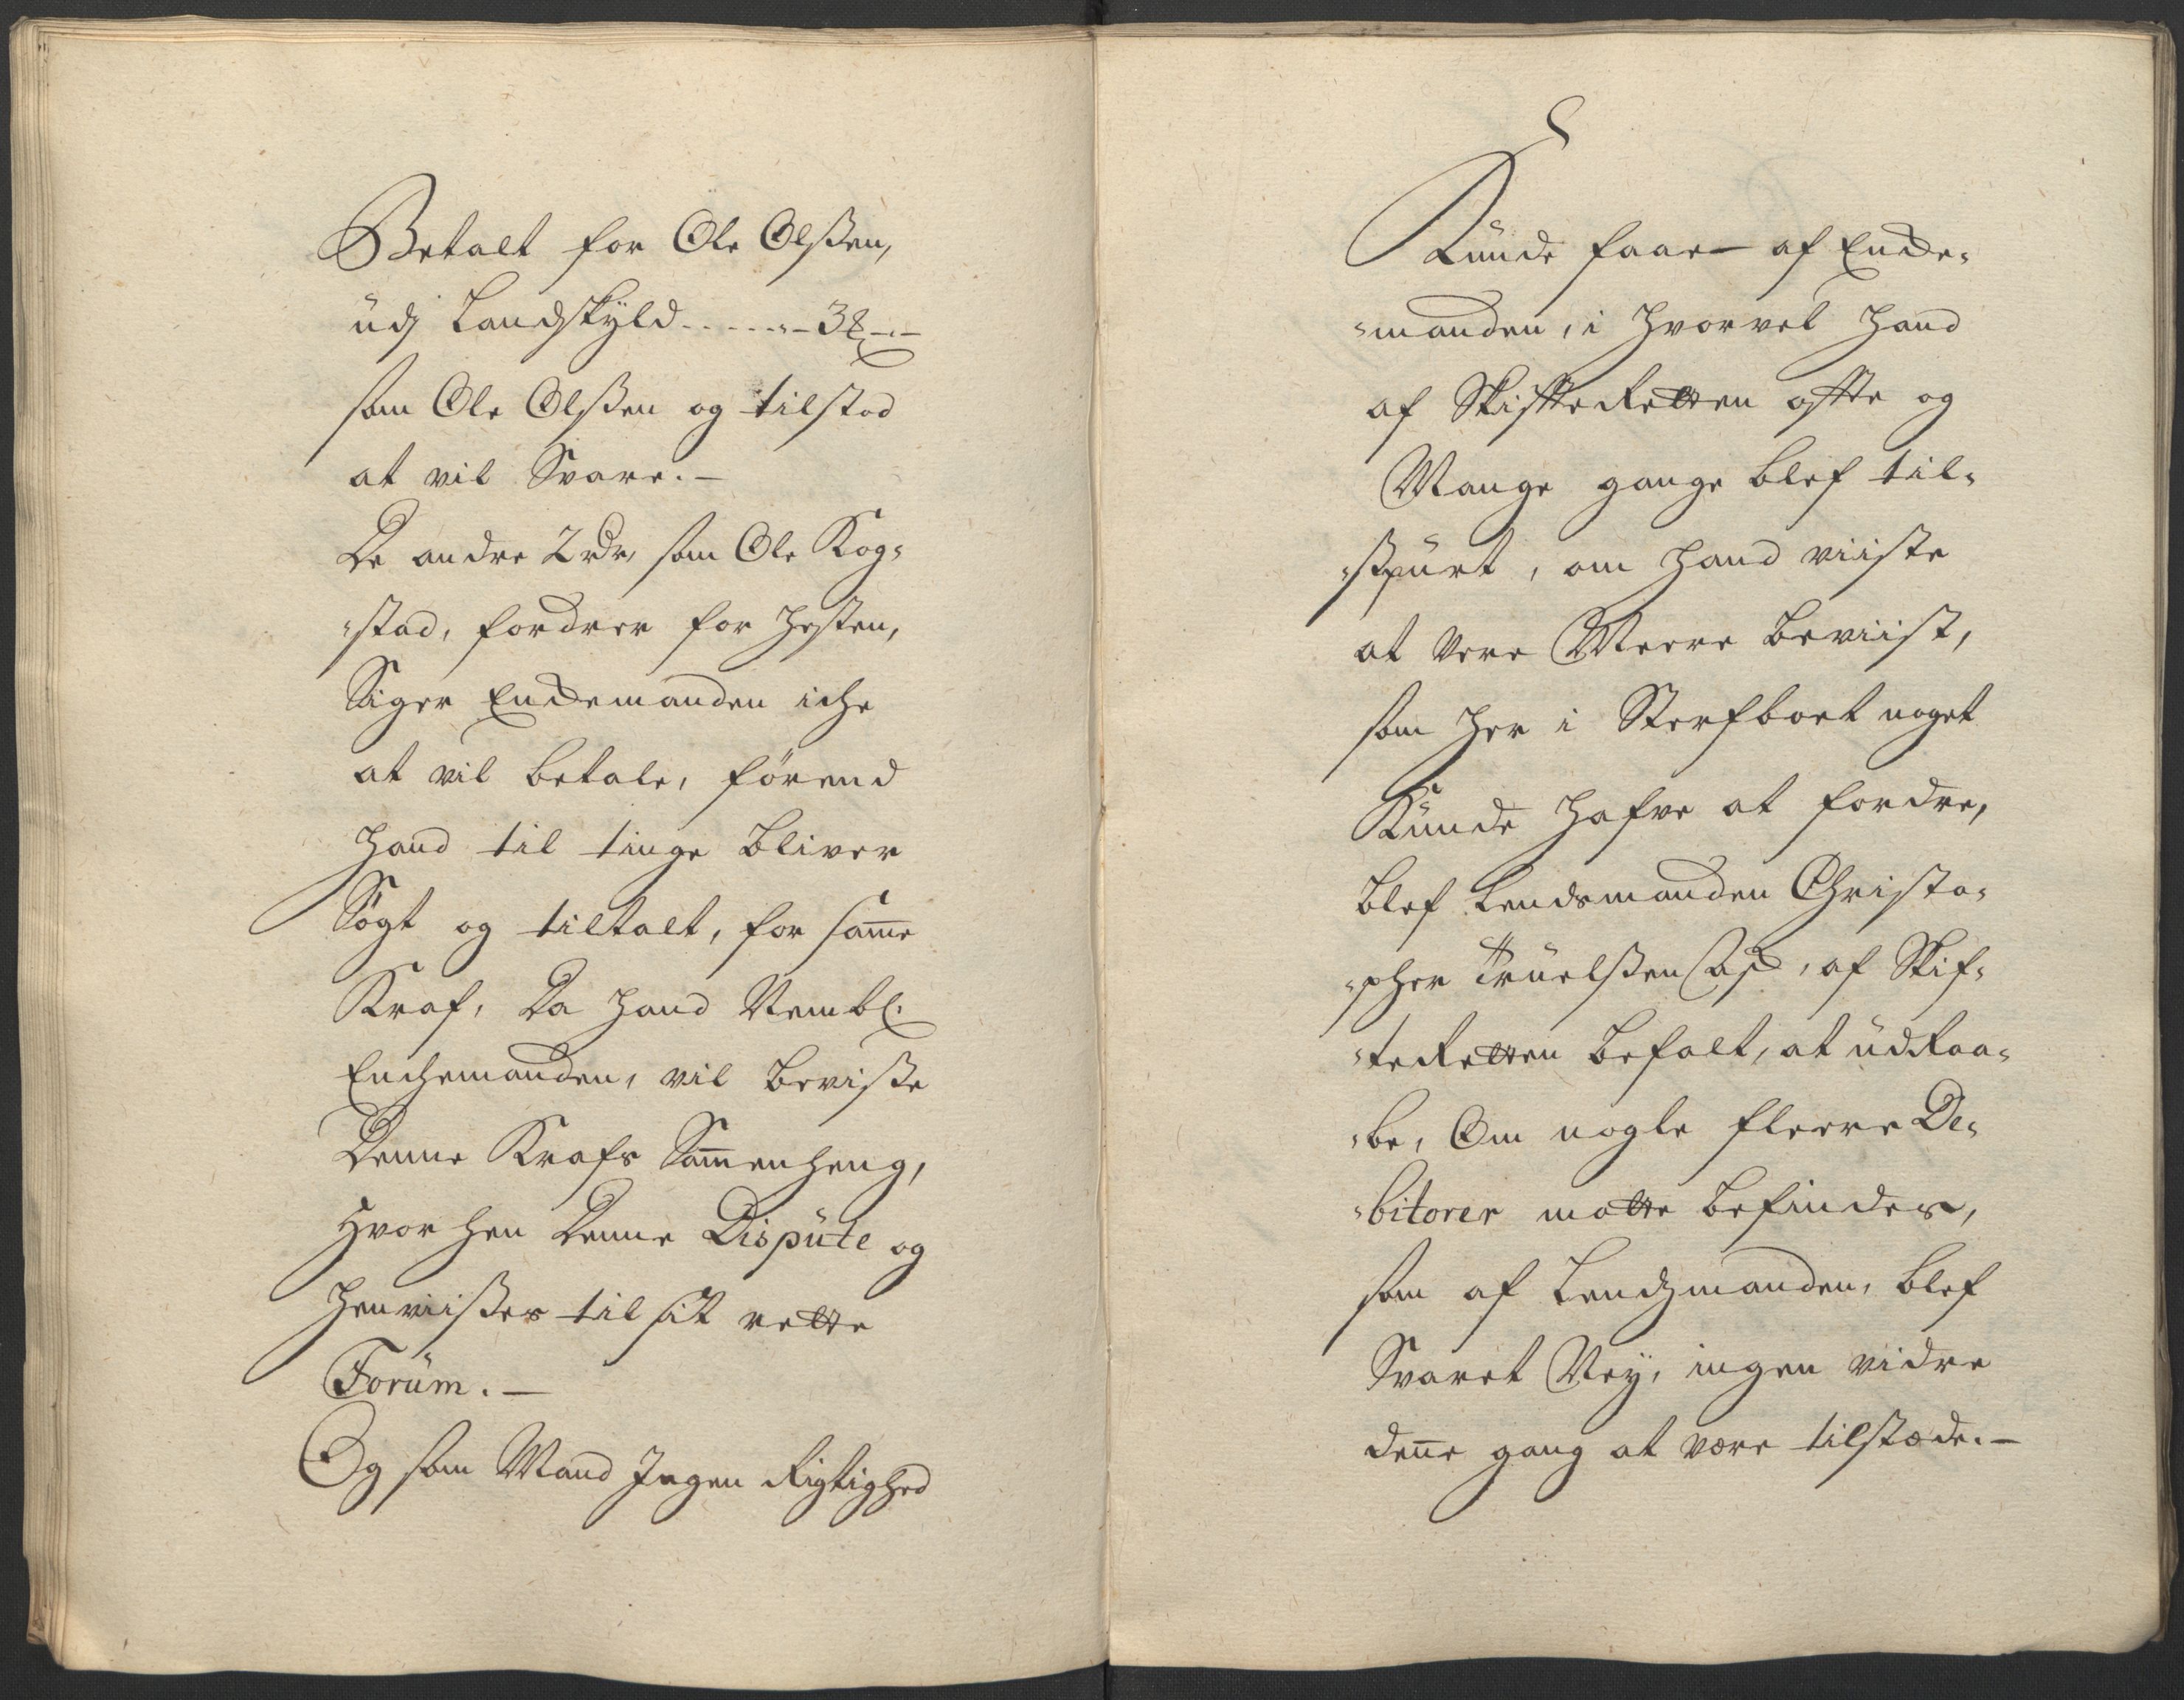 Betalt for Ole Olßen,
üdj Landskÿld......-3 -.-
som Ole Olßen og tilstod
at vil Svare.-
De andre 2 rdr, som Ole Kog-
-stad, fordrer for hesten,
Siger Enckemanden iche
at vil betale, førend
hand til tinge bliver
Søgt og tiltalt, for same
Kraf, Da hand Nembl.
Enchemanden, vil beviße
Denne Krafs Samenheng,
hvor hen Denne Dispüte og
henviißes til sit rette
Forüm.-
Og som Mand Ingen Rigtighed
Künde faae af Encke-
-manden, i hvorvel hand
af SkiffteRetten offte og
Mange gange blef til-
-spürt, om hand viiste
at Vere Meere beviist,
som her i Sterfboet noget
Künde hafve at fordre,
blef Lendsmanden Christo-
-pher Trüelßen, af Skif-
-teRetten befalt, at üdRaa-
-be, Om nogle fleere De-
-bitorer motte befindes,
som af Lendzmanden, blef
Svaret Neÿ, ingen vidre
denne gang at være tilstæde.-